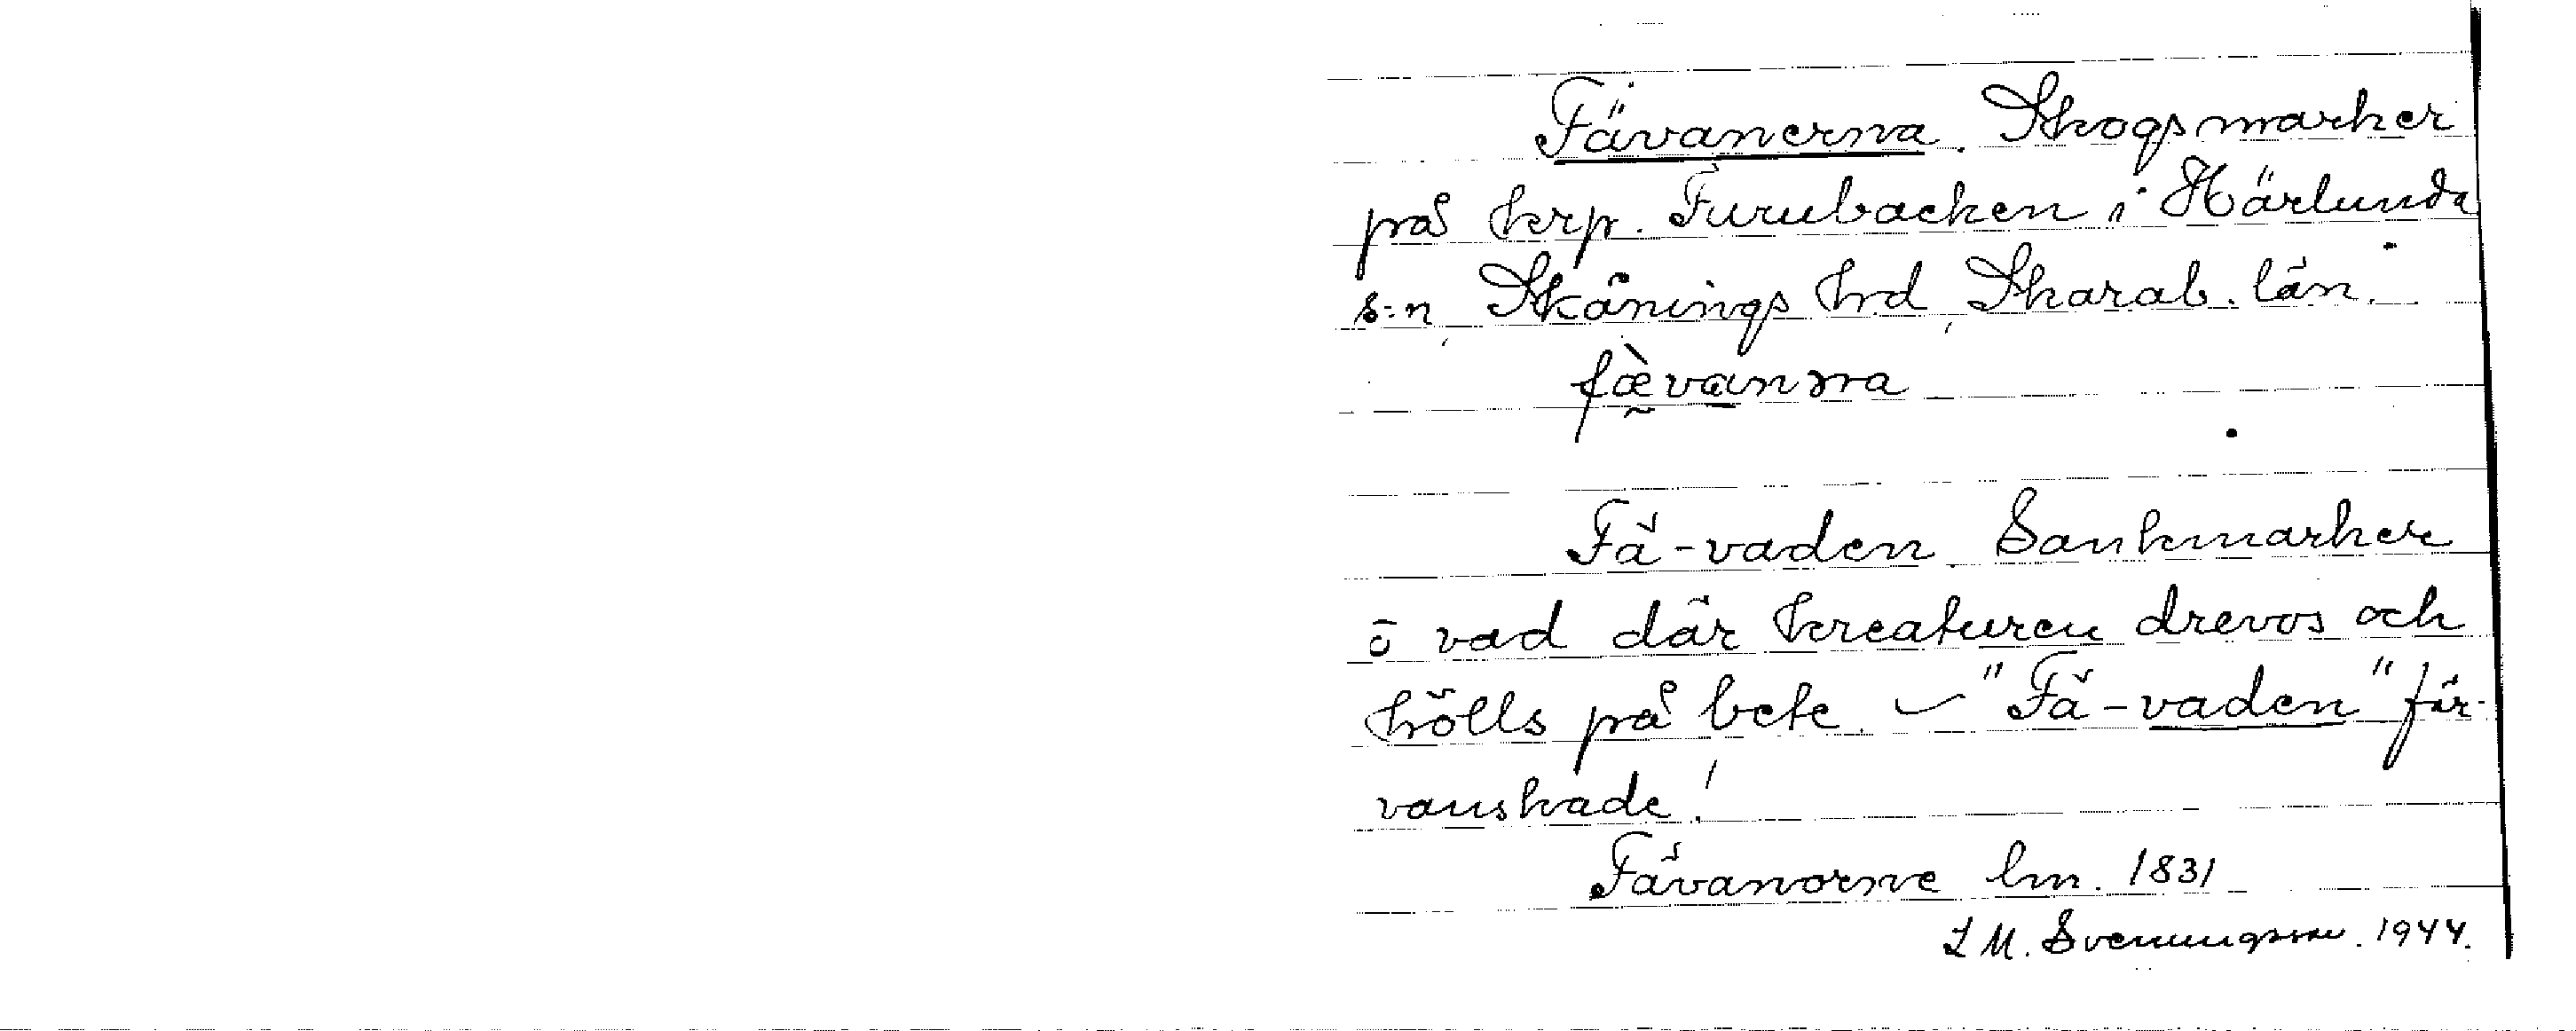 Fävanerna. Skogsmarker
på krp. Furubacken i Härlunda
s:n, Skånings hrd, Skarab. län.
fæ̀vanna
Fä-vaden. Sankmarker
o vad där kreaturen drevos och
hölls på bete. – "Fä-vaden" för-
vanskade!
Fävanorne lm. 1831
L M. Svenungsson. 1944.